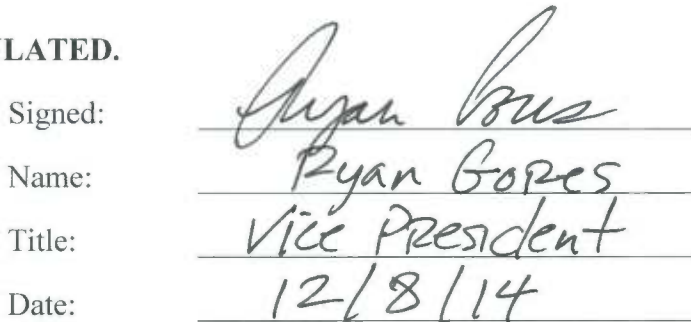 LATED.
Signed: Ryan Gores
Name: Ryan Gores
Title: Vice President
Date: 12/8/14